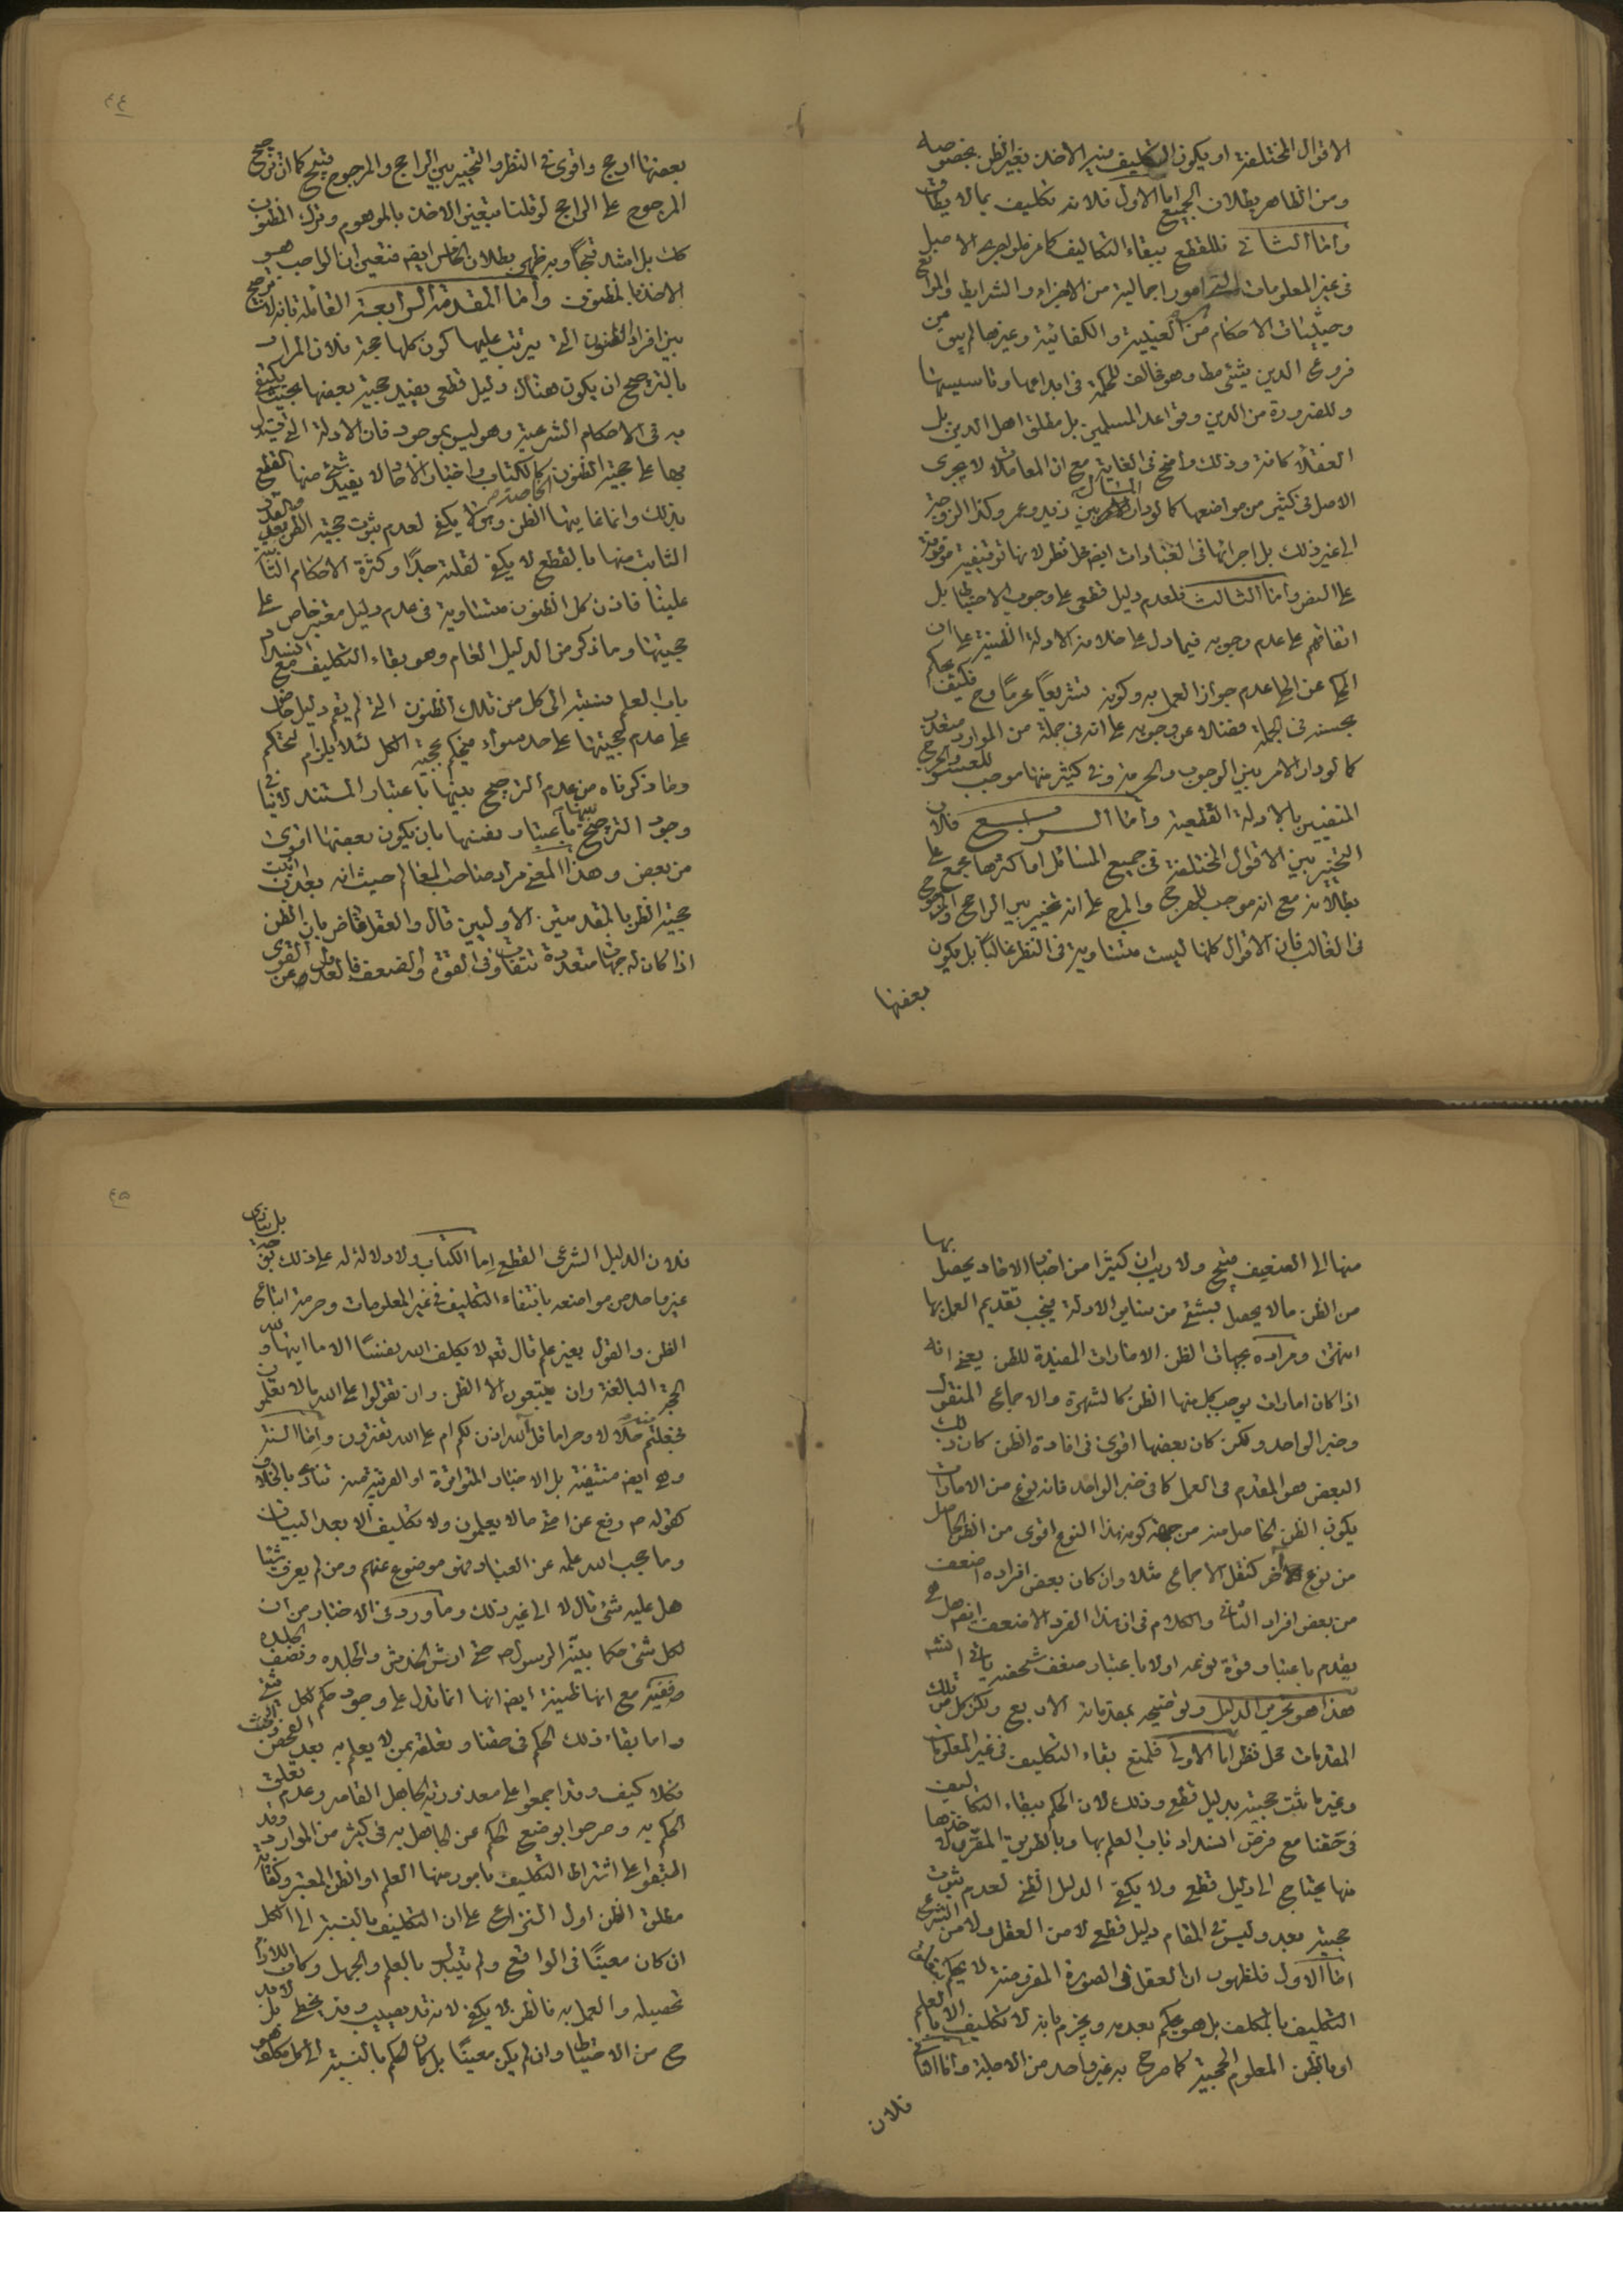 الاقوال المختلفة او يكون التكليف فيه الاخذ بغير الظن بخصوصه
ومن الظاهر بطلان الجميع اما الاول فلانه تكليف بما لا يطاق
واما الثانى فللقطع ببقاء التكاليف كما مر فلو اجرى الاصل
فى غير المعلومات التى امور اجمالية من الاجزاء والشرايط والموانع
وحيثيات الاحكام من العينية والكفائية وغيرها لم يبق من
فروع الدين شئ قط وهو مخالف للحكمة فى ابداعها وتاسيسها
وللضرورة من الدين وقواعد المسلمين بل مطلق اهل الدين بل
العقلاء كافة وذلك واضح فى الغاية مع ان المعاملات لا يجرى
الاصل فى كثير من مواضعها كما لو دار المال بين زيد وعمرو وكذا الزوجة
الى غير ذلك بل اجرائها فى العبادات ايضا محل نظر لانها توقيفية موقوفة
على النص واما الثالث فلعدم دليل قطعى على وجوب الاحتياط بل
اتفاقهم على عدم وجوبه فيما دل على خلافه الادلة الظنية على ان
المحكى عن الحلى عدم جواز العمل به وكونه تشريعا محرما وح فكيف يحكم
بحسنه فى الجملة فضلا عن وجوبه على انه فى جملة من الموارد متعذر
كما لو دار الامر بين الوجوب والحرمة وفى كثير منها موجب للعسر والحرج
المنفيين بالادلة القطعية واما الرابع فلان
التخيير بين الاقوال المختلفة فى جميع المسائل او اكثرها مجمع على
بطلانه مع انه موجب للهرج والمرج على انه تخيير بين الراجح والمرجوح
فى الغالب فان الاقوال كلها ليست متساوية فى النظر غالبا بل يكون
بعضها
٤٤
بعضها ارجح واقوى فى النظر والتخيير بين الراجح والمرجوح قبيح كما ان ترجيح
المرجوح على الراجح لو قلنا بتعين الاخذ بالموهوم وترك المظنون
كك بل اشد قبحا وبه ظهر بطلان الخامس ايضا فتعين ان الواجب هو
الاخذ بالمظنون واما المقدمة الرابعة القائلة بانه لا ترجيح
بين افراد الظنون التى يترتب عليها كون كلها حجة فلان المراد
بالترجيح ان يكون هناك دليل قطعى يفيد حجية بعضها بحيث يكتفى
به فى الاحكام الشرعية وهو ليس بموجود فان الادلة التى استدل
بها على حجية الظنون الخاصة كالكتاب واخبار الاحاد لا يفيد شئ منها القطع
بذلك وانما غايتها الظن وهو لا يكفى لعدم ثبوت حجية الظن بعد والقدر
الثابت منها بالقطع لا يكفى لقلته جدا وكثرة الاحكام الثابتة
علينا فاذن كل الظنون متساوية فى عدم دليل معتبر خاص على
حجيتها وما ذكر من الدليل العام وهو بقاء التكليف مع انسداد
باب العلم نسبته الى كل من تلك الظنون التى لم يقم دليل خاص
على عدم حجيتها على حد سواء فيحكم بحجية الكل لئلا يلزم التحكم
وما ذكرناه من عدم الترجيح بينها باعتبار المستند لا ينافى
وجود الترجيح بينها باعتبار نفسها بان يكون بعضها اقوى
من بعض وهذا المعنى مراد صاحب المعالم حيث انه بعد ان اثبت
حجية الظن بالمقدمتين الاوليين قال والعقل قاض بان الظن
اذا كان له جهات متعددة تتفاوت فى القوة والضعف فالعدول عن القوى
بها
منها الى الضعيف قبيح ولا ريب ان كثيرا من اخبار الاحاد يحصل
من الظن ما لا يحصل بشئ من سائر الادلة فيجب تقديم العمل بها
انتهى ومراده بجهات الظن الامارات المفيدة للظن يعنى انه
اذا كان امارات يوجب كل منها الظن كالشهرة والاجماع المنقول
وخبر الواحد ولكن كان بعضها اقوى فى افادة الظن كان ذلك
البعض هو المقدم فى العمل كما فى خبر الواحد فانه نوع من الامارات
يكون الظن الحاصل منه من جهة كونه بهذا النوع اقوى من الظن الحاصل
من نوع آخر كنقل الاجماع مثلا وان كان بعض افراده اضعف
من بعض افراد الثانى والكلام فى ان هذا الفرد الاضعف ايضا هل
يقدم باعتبار قوة نوعه او لا باعتبار ضعف شخصه ياتى انشه
هذا هو تحرير الدليل وتوضيحه بمقدماته الاربع ولكن كل من تلك
المقدمات محل نظر اما الاولى فلمنع بقاء التكليف فى غير المعلومات
وغير ما ثبت حجيته بدليل قطعى وذلك لان الحكم ببقاء التكاليف
فى حقنا مع فرض انسداد باب العلم بها وبالطريق المقرر لاخذها
منها يحتاج الى دليل قطعى ولا يكفى الدليل الظنى لعدم ثبوت
حجيته بعد وليس فى المقام دليل قطعى لا من العقل ولا من الشرع
اما الاول فلظهور ان العقل فى الصورة المفروضة لا يحكم ببقاء
التكليف بالمكلف بل هو يحكم بعدمه ويجزم بانه لا تكليف الا بالعلم
او بالظن المعلوم الحجية كما صرح به غير واحد من الاجلة واما الثانى
فلان
٤٥
فلان الدليل الشرعى القطعى اما الكتاب ولا دلالة له على ذلك بوجه بل ينادى
غير واحد من مواضعه بانتفاء التكليف فى غير المعلومات وحرمة اتباع
الظن والقول بغير علم قال تعه لا يكلف الله نفسا الا ما اتيها ولله
الحجة البالغة وان يتبعون الا الظن وان تقولوا على الله ما لا تعلمون
فجعلتم منه حلالا وحراما قل آلله اذن لكم ام على الله تفترون واما السنة
وهى ايضا منتفية بل الاخبار المتواترة او القريبة منه تنادى بالخلاف
كقوله ص رفع عن امتى ما لا يعلمون ولا تكليف الا بعد البيان
وما حجب الله علمه عن العباد فهو موضوع عنهم ومن لم يعرف شيئا
هل عليه شئ قال لا الى غير ذلك وما ورد فى الاخبار من ان
لكل شئ حكما بينه الرسول ص حتى ارش الخدش والجلده ونصف الجلده
ضعيف مع انها ظنية ايضا انها انما تدل على وجود حكم لكل شئ
واما بقاء ذلك الحكم فى حقنا وتعلقه بمن لا يعلم به بعد الفحص والبحث
فكلا كيف وقد اجمعوا على معذورية الجاهل القاصر وعدم تعلق
الحكم به وصرحوا بوضع الحكم عن الجاهل به فى كثير من الموارد وقد
اتفقوا على اشتراط التكليف بامور منها العلم او الظن المعتبر وكفاية
مطلق الظن اول النزاع على ان التكليف بالنسبة الى الكل
ان كان معينا فى الواقع ولم يتبدل بالعلم والجهل وكان اللازم
تحصيله والعمل به فالظن لا يكفى لانه قد يصيب وقد يخطى بل لا بد
ح من الاحتياط وان لم يكن معينا بل كان الحكم بالنسبة الى كل مكلف هو